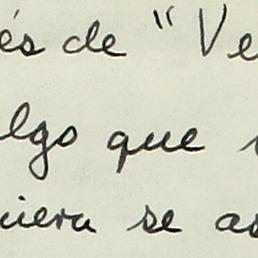 és de " Ve
lgo que
uiera se as